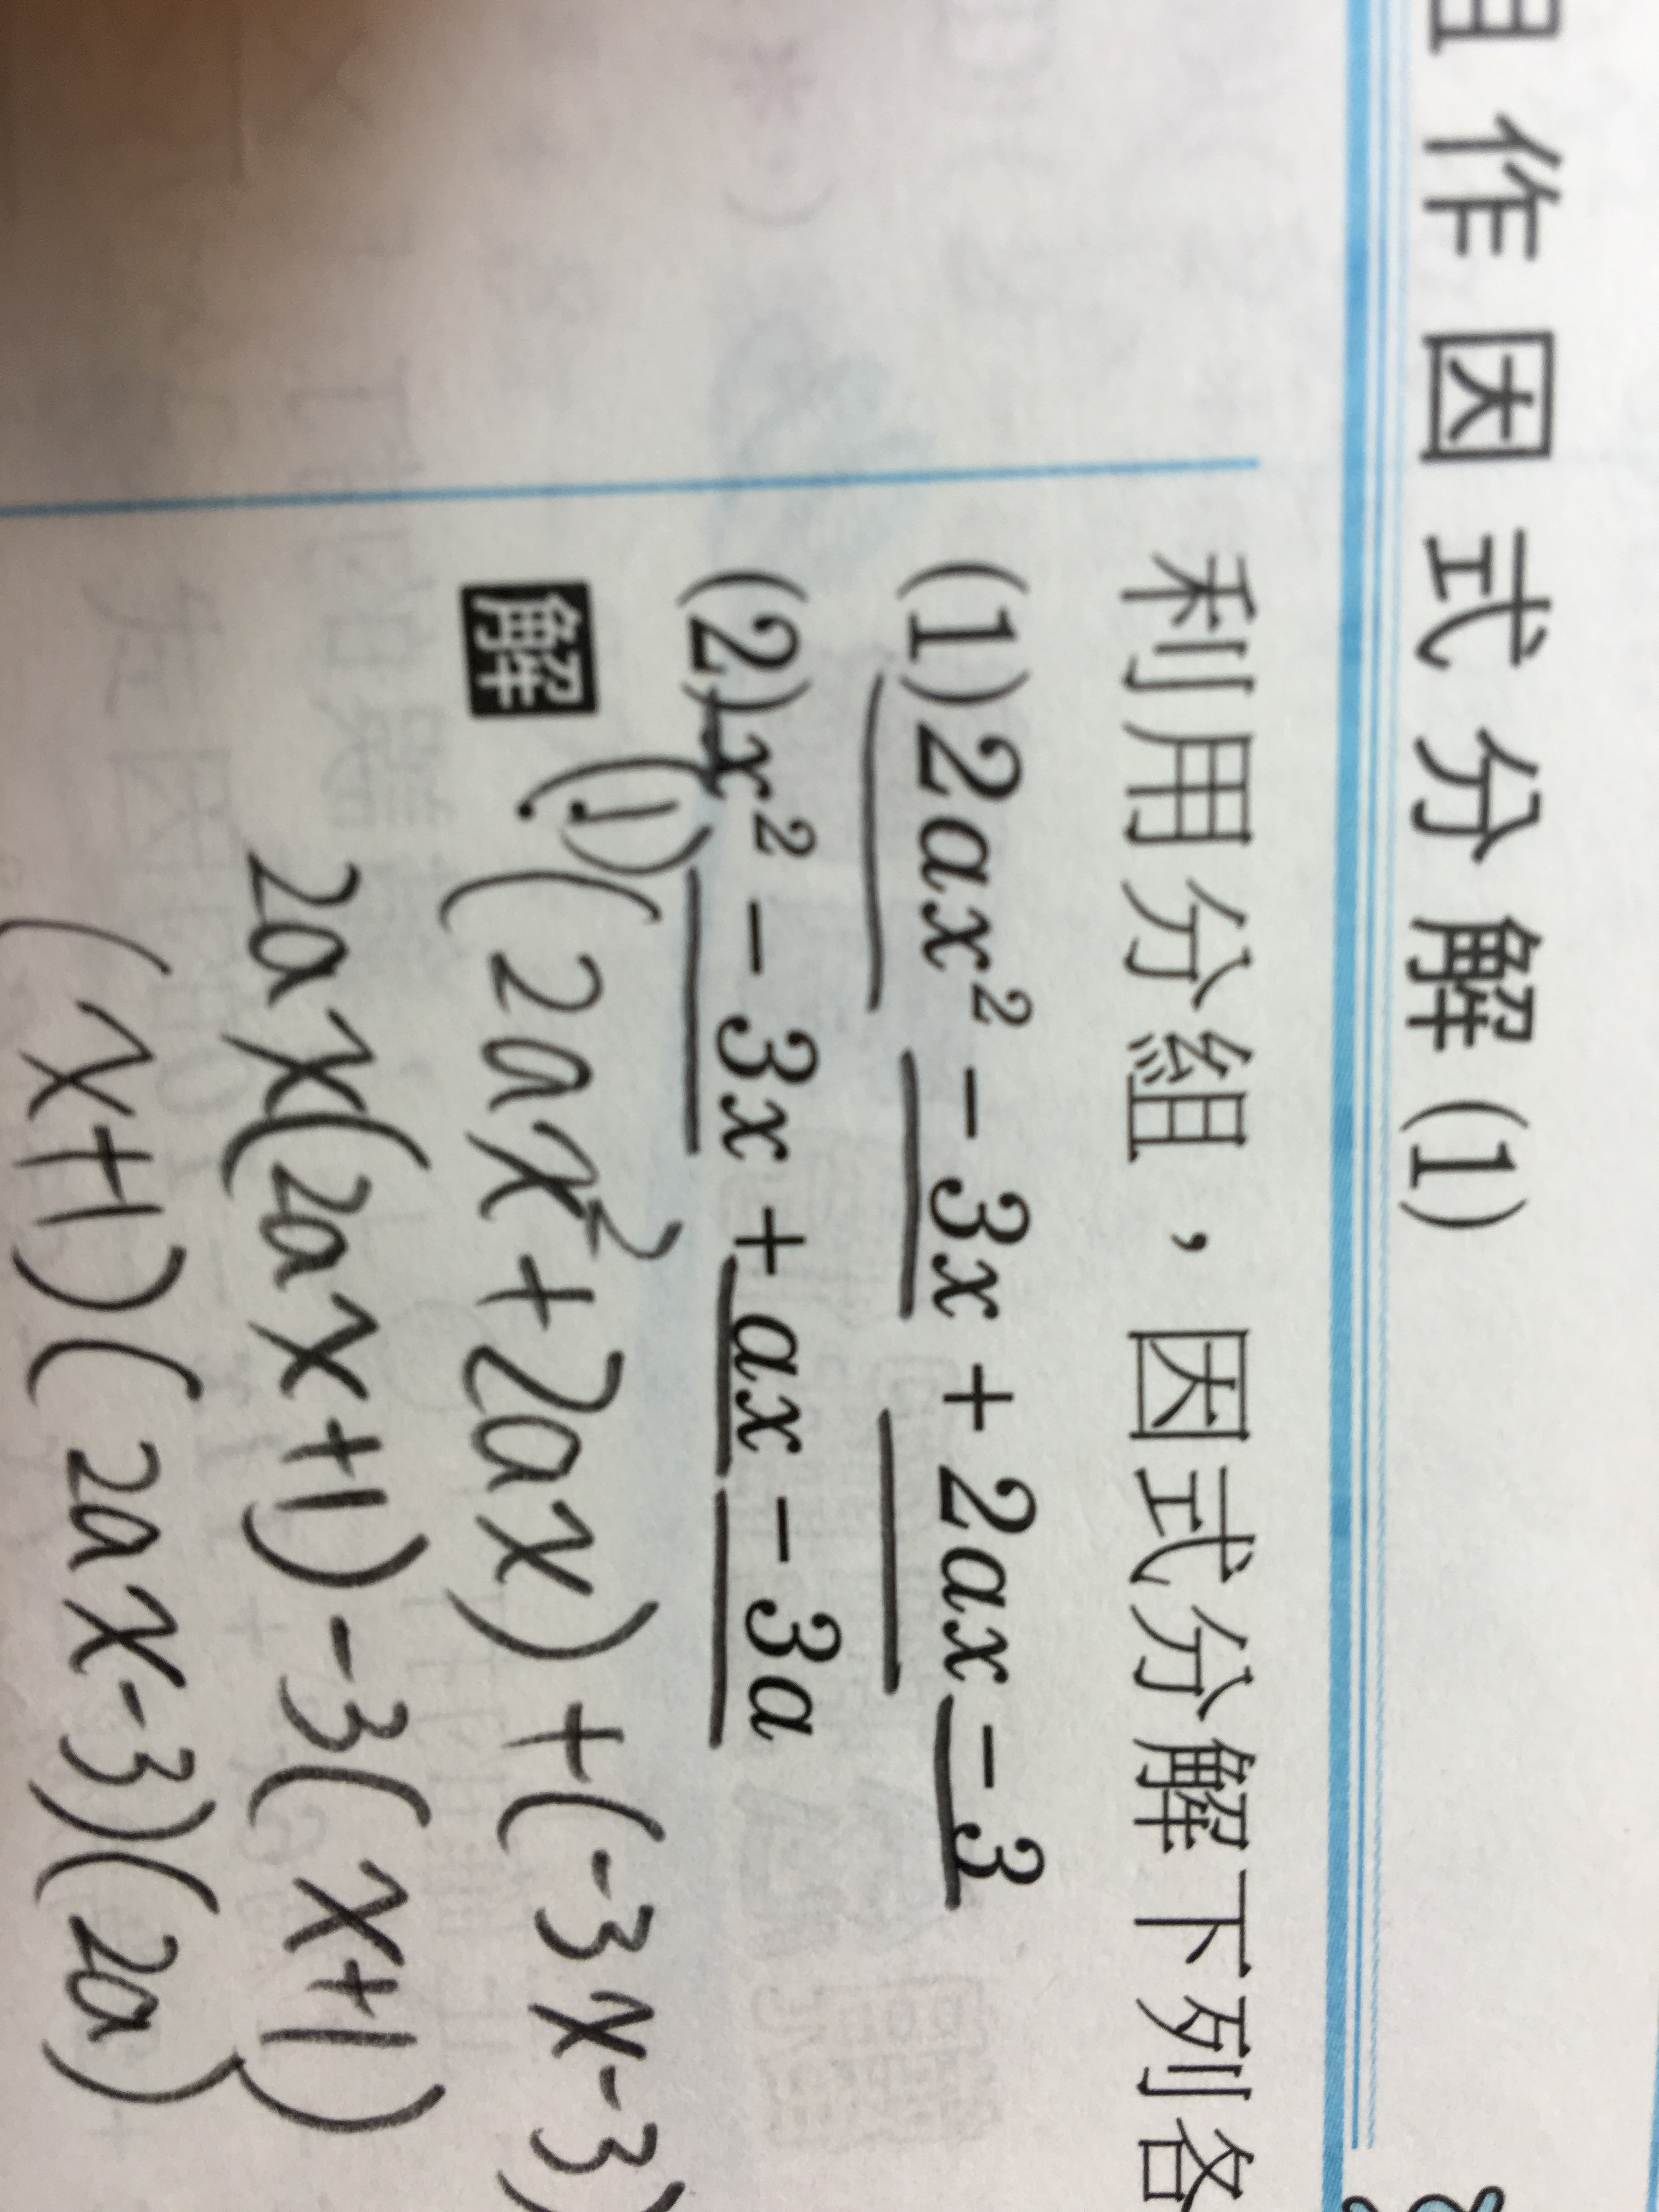 作因式分解(1)
利用分組，因式分解下列各
(1)2ax² − 3x + 2ax − 3
(2)x² − 3x + ax − 3a
解 (1) (2ax²+2ax)+(-3x-3)
2ax(2ax+1)-3(x+1)
(x+1)(2ax-3)(2a)